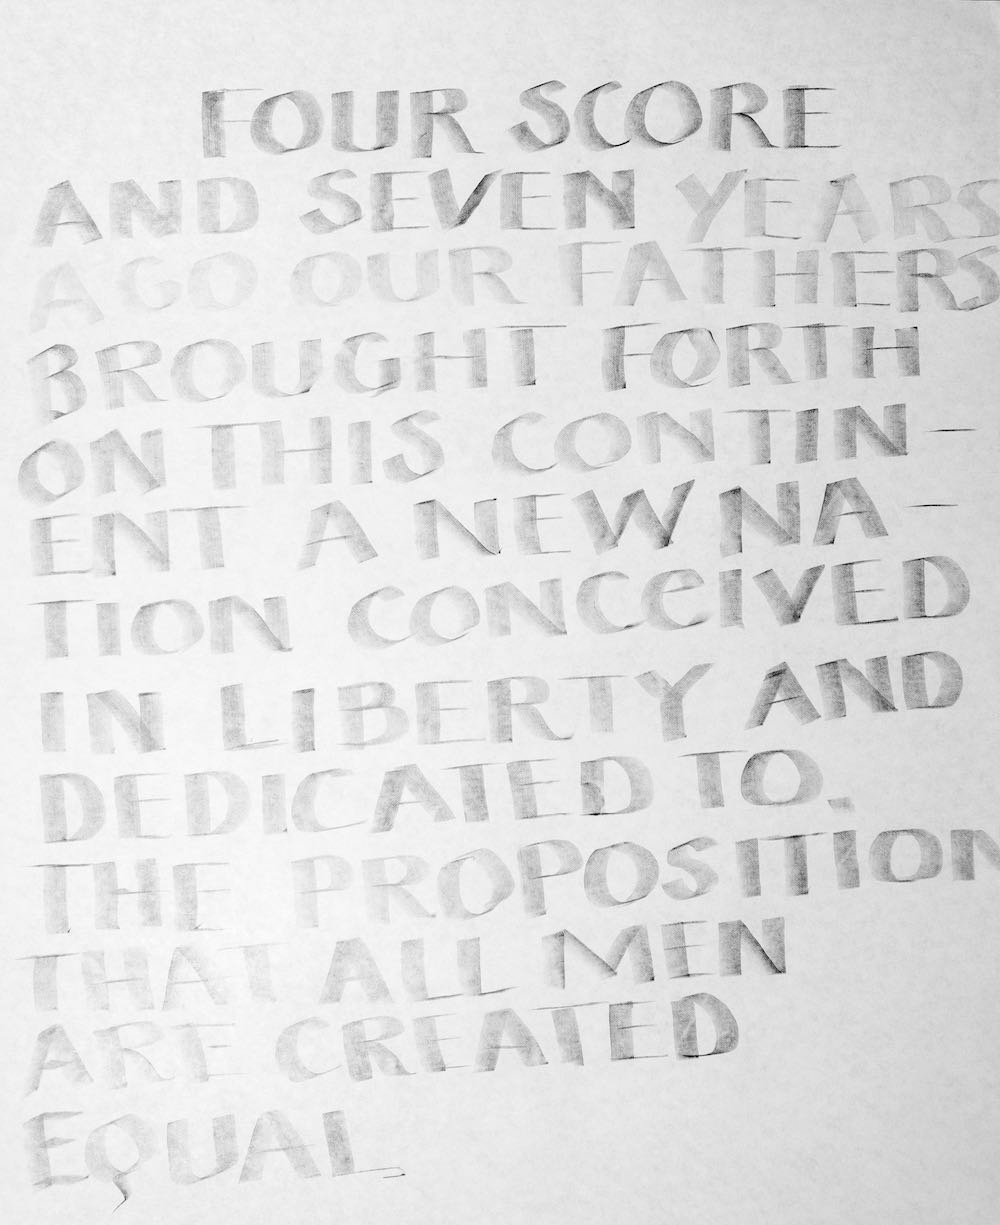 FOUR SCORE
AND SEVEN YEARS
AGO OUR FATHERS
BROUGHT FORTH
ON THIS CONTIN—
ENT A NEW NA—
TION CONCEIVED
IN LIBERTY AND
DEDICATED TO.
THE PROPOSITION
THAT ALL MEN
ARE CREATED
EQUAL